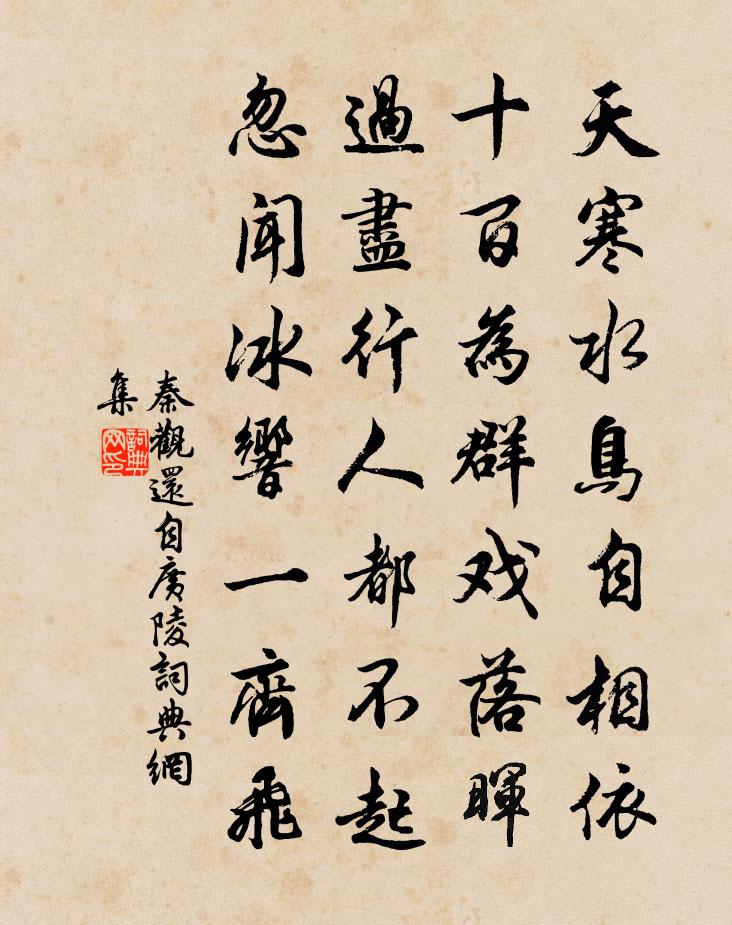 天寒水鳥自相依
十百為群戏落暉
過盡行人都不起
忽聞冰響一齊飛
秦觀還自廣陵詞典網
集
詞典
网印